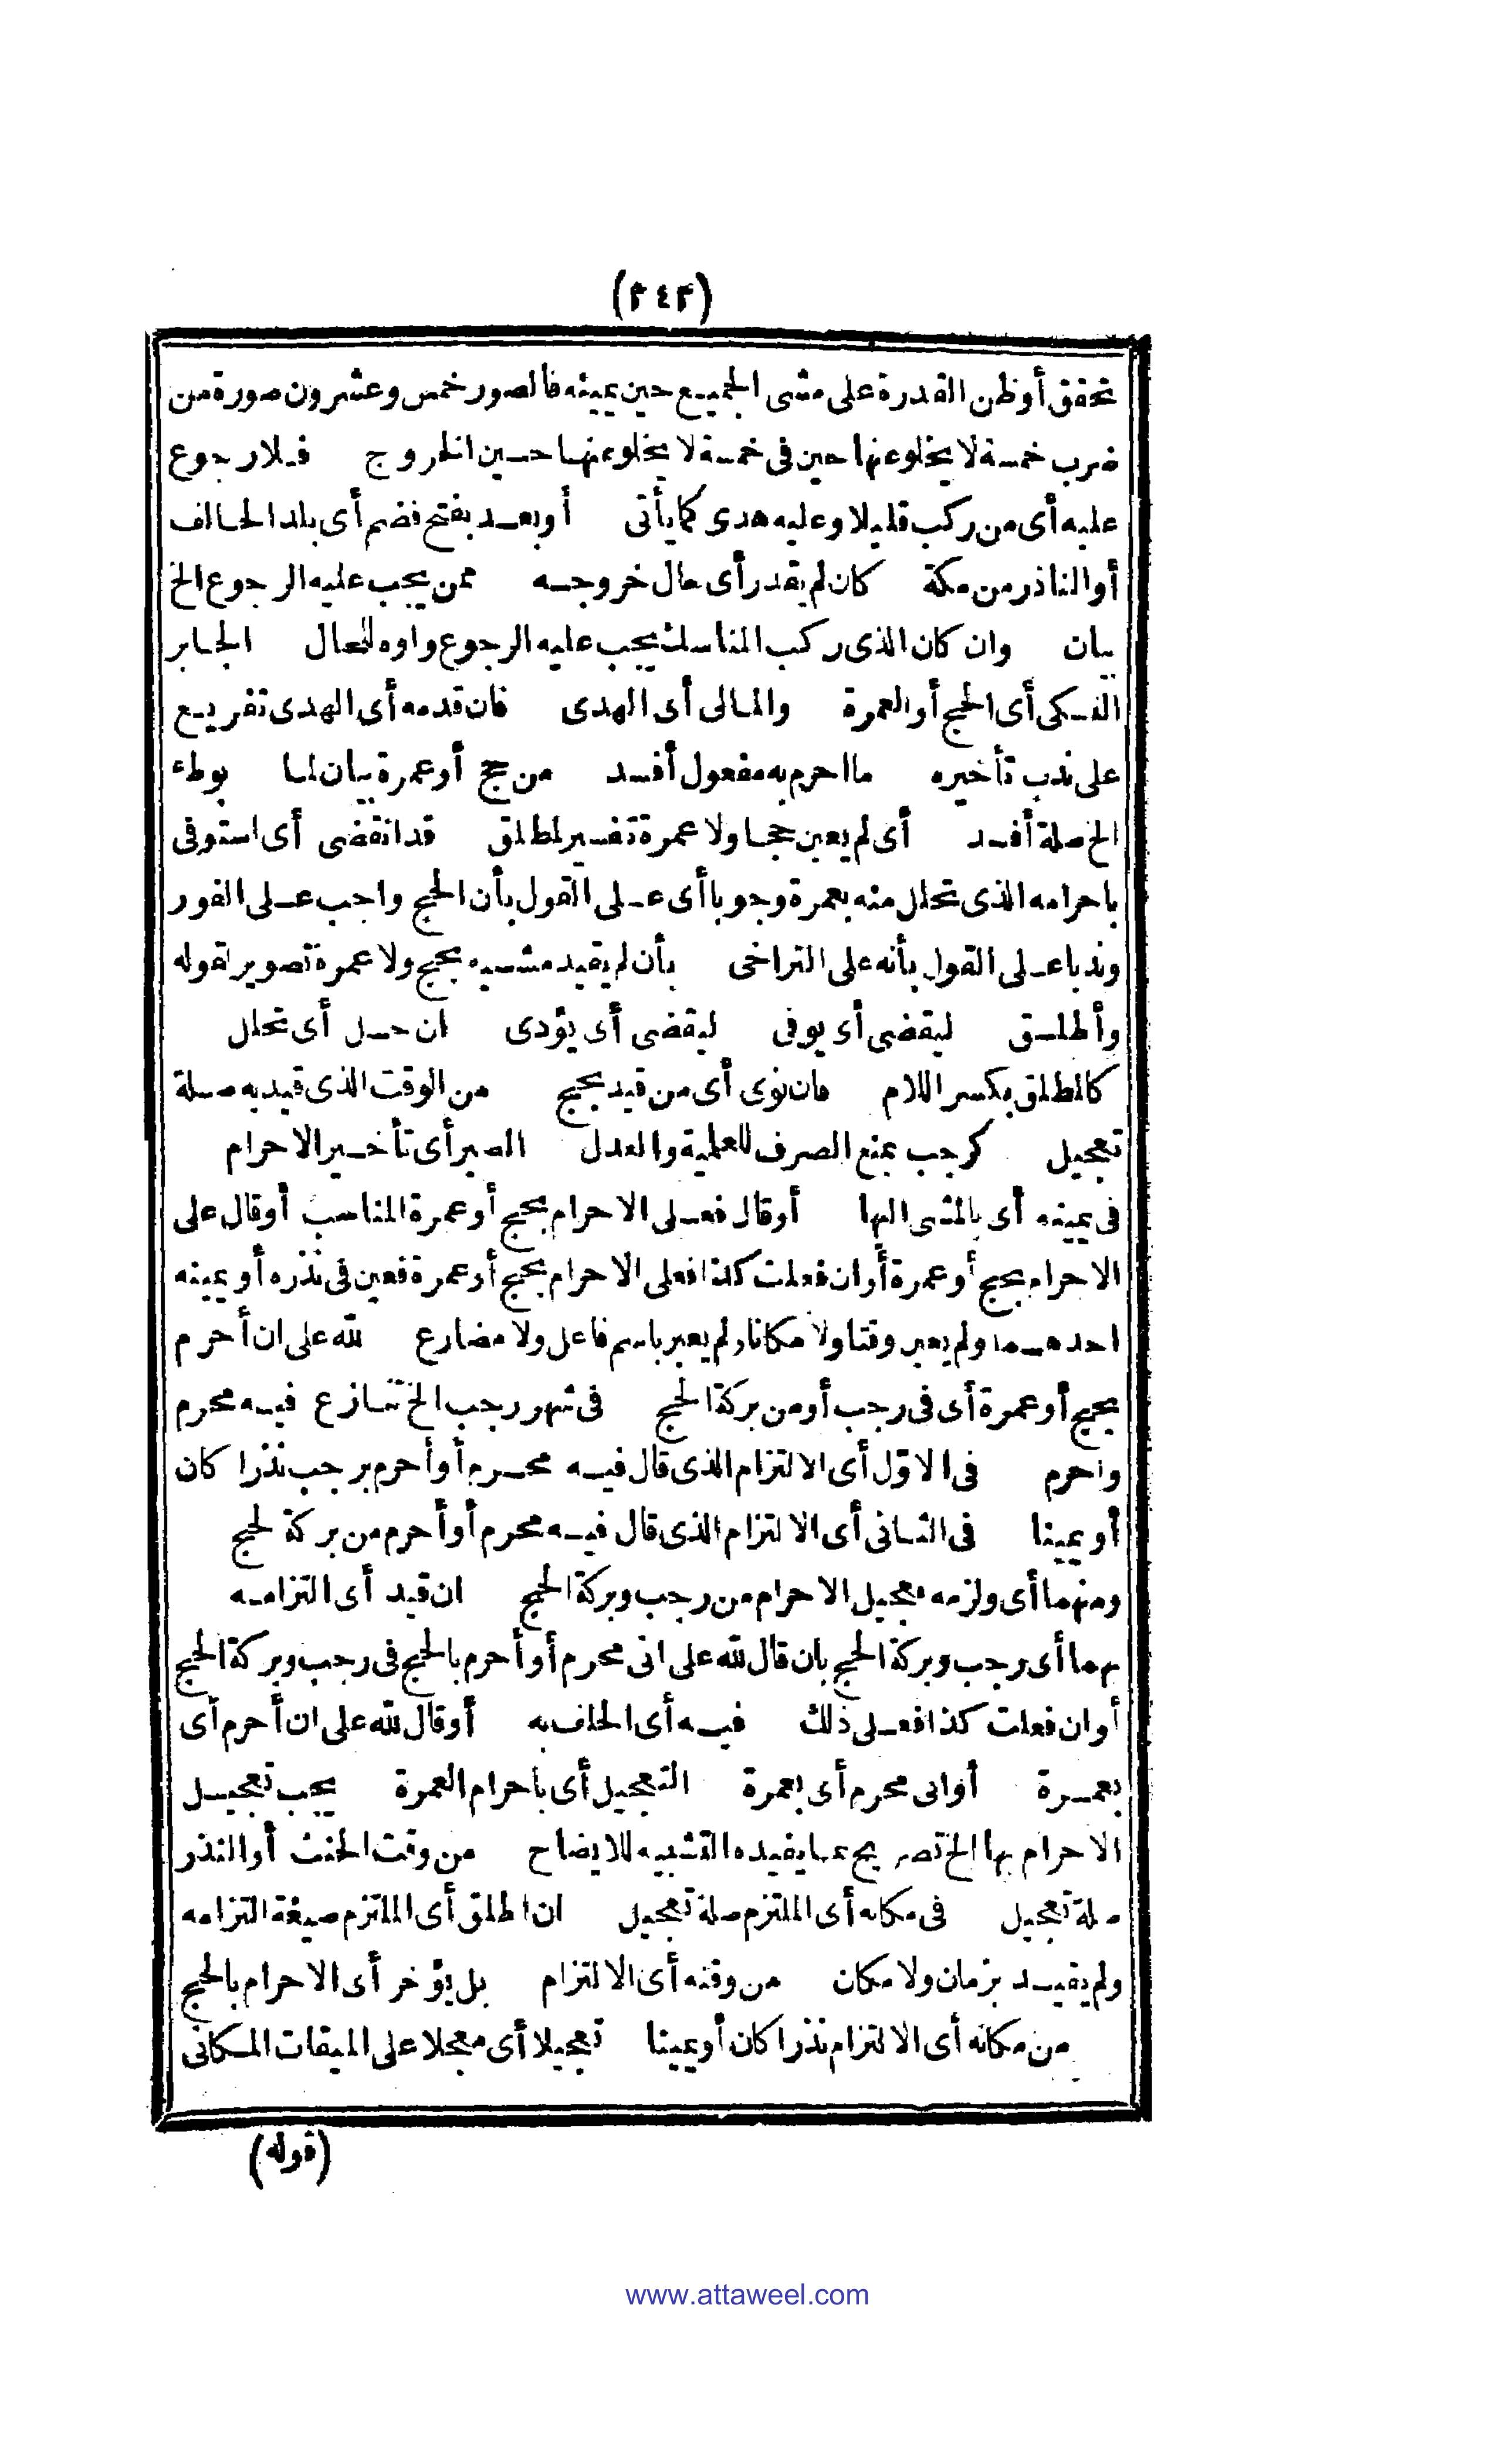 (٣٤٢)
تحقق أوظن القدرة على مشى الجميع حين يمينه فالصور خمس وعشرون صورة من
ضرب خمسة لا يخلو عنها حين فى خمسة لا يخلو عنها حين الخروج فلا رجوع
عليه أى من ركب قليلا وعليه هدى كما يأتى أو بعد بفتح فضم أى بلد الحالف
أوالناذر من مكة كان لم يقدر أى حال خروجه ممن يجب عليه الرجوع الخ
بيان وان كان الذى ركب المناسك يجب عليه الرجوع واوه للحال الجابر
النسكى أى الحج أو العمرة والمالى أى الهدى فان قدمه أى الهدى تفريع
على ندب تأخيره ما احرم به مفعول أفسد من حج أوعمرة بيان لما بوطء
الخ صلة أفسد أى لم يعين حجا ولا عمرة تفسير لمطلق قد انقضى أى استوفى
باحرامه الذى تحلل منه بعمرة وجوبا أى على القول بأن الحج واجب على الفور
وندبا على القول بأنه على التراخى بأن لم يقيد مشسيه بحج ولا عمرة تصوير لقوله
وأطلق ليقضى أى يوفى ليقضى أى يؤدى ان حل أى تحلل
كالمطلق بكسر اللام فان نوى أى من قيد بحج من الوقت الذى قيد به صلة
تعجيل كرجب بمنع الصرف للعلمية والعدل الصبر أى تأخير الاحرام
فى يمينه أى بالمشى اليها أوقال فعلى الاحرام بحج أوعمرة المناسب أوقال على
الاحرام بحج أوعمرة أو ان فعلت كذا فعلى الاحرام بحج أوعمرة فعين فى نذره أو يمينه
احدهما ولم يعبر وقتا ولا مكانا ولم يعبر باسم فاعل ولا مضارع لله على ان أحرم
بحج أوعمرة أى فى رجب أومن بركة الحج فى شهر رجب الخ تنازع فيه محرم
واحرم فى الاوّل أى الالتزام الذى قال فيه محرم أوأحرم برجب نذرا كان
أو يمينا فى الثانى أى الالتزام الذى قال فيه محرم أوأحرم من بركة لحج
ومنهما أى ولزمه تعجيل الاحرام من رجب وبركة الحج ان قيد أى التزامه
بهما أى رجب وبركة الحج بان قال لله على انى محرم أوأحرم بالحج فى رجب وبركة الحج
أوان فعلت كذا فعلى ذلك فيه أى الحلف به أوقال لله على ان أحرم أى
بعمرة أوانى محرم أى بعمرة التعجيل أى باحرام العمرة يجب تعجيل
الاحرام بها الخ تصريح بما يفيده التشبيه للايضاح من وقت الحنث أوالنذر
صلة تعجيل فى مكانه أى الملتزم صلة تعجيل ان اطلق أى الملتزم صيغة التزامه
ولم يقيد بزمان ولا مكان من وقته أى الالتزام بل يؤخر أى الاحرام بالحج
من مكانه أى الالتزام نذرا كان أو يمينا تعجيلا أى معجلا على الميقات المكانى
(قوله)
www.attaweel.com